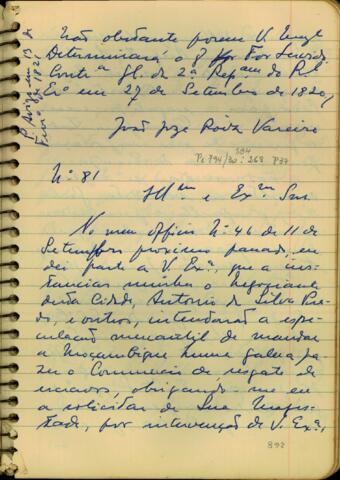 Não obstante porem V. Exª
Determinará o q. for Servido
Contª Gl. da 2ª Repam do Rl
Erº em 27 de Setembro de 1820,
João Joze Roiz Vareiro
P. Avizo em 13 de
Fevrº de 1821
Pe 794/30: 268 P37
284
Nº 81
Illm e Exm Snr
No meu Officio Nº 46 de 11 de
Setembro proximo passado, eu
dei parte a V. Exª, que a ins-
tancias minhas o negociante
desta Cidade, Antonio da Silva Pra-
do, e outros, intentarão a espe-
culação mercantil de mandar
a Moçambique huma galera fa-
zer o Commercio de resgate de
escravos, obrigando-me eu
a solicitar de Sua Mages-
tade, por intervenção de V. Exª,
892